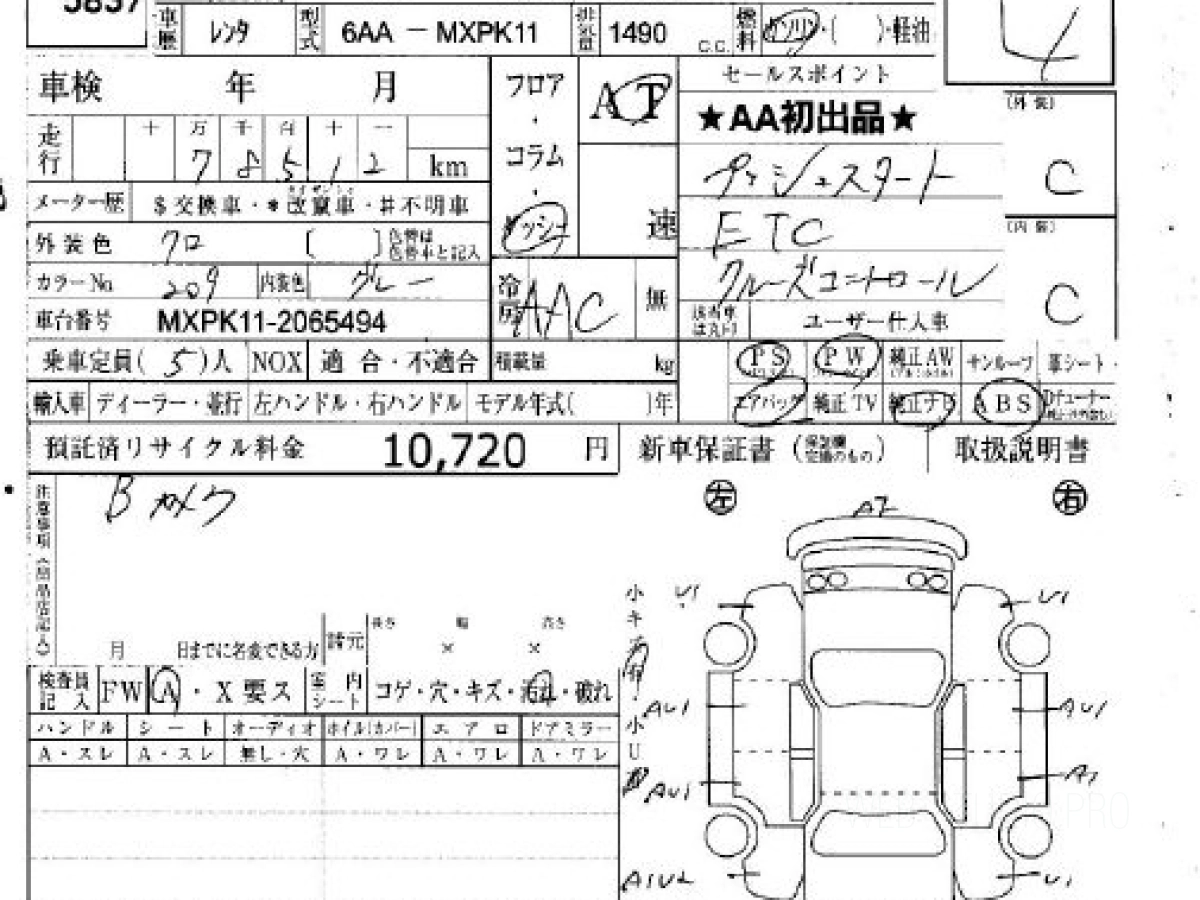 5837
車歴 レンタ 型式 6AA － MXPK11 排気量 1490 C.C. 燃料 ガソリン・( )・軽油
4
車検 年 月
フロア・コラム・ダッシュ
AT
速
セールスポイント
★AA初出品★
プッシュスタート
ETC
クルーズコントロール
(外装)
C
(内装)
C
走行 十 万 千 百 十 一
7 8 5 1 2 km
メーター歴 $交換車・*改竄車・#不明車
外装色 クロ [ ] 色替は色替車と記入
カラーNo. 209 内装色 グレー
冷房 AAC 無
該当車は丸印 ユーザー仕入車
車台番号 MXPK11-2065494
乗車定員( 5 )人 NOX 適 合・不適合 積載量 kg
PS PW 純正AW サンルーフ 革シート・
輸入車 ディーラー・並行 左ハンドル・右ハンドル モデル年式( )年
エアバッグ 純正TV 純正ナビ ABS Dチューナー
預託済リサイクル料金 10,720 円
新車保証書 (保証継定備のもの) 取扱説明書
注意事項(出品店記入)
B カメラ
左 右
A2
小キズ有 小U
U1 U1
AU1 AU1
AU1 A1
A1U2 U1
月 日までに名変できる方 諸元 長さ × 幅 × 高さ
検査員記入 FW A・X要ス 室内シート コゲ・穴・キズ・汚れ・破れ
ハンドル シート オーディオ ホイル(カバー) エアロ ドアミラー
A・スレ A・スレ 無し・穴 A・ワレ A・ワレ A・ワレ
PRO